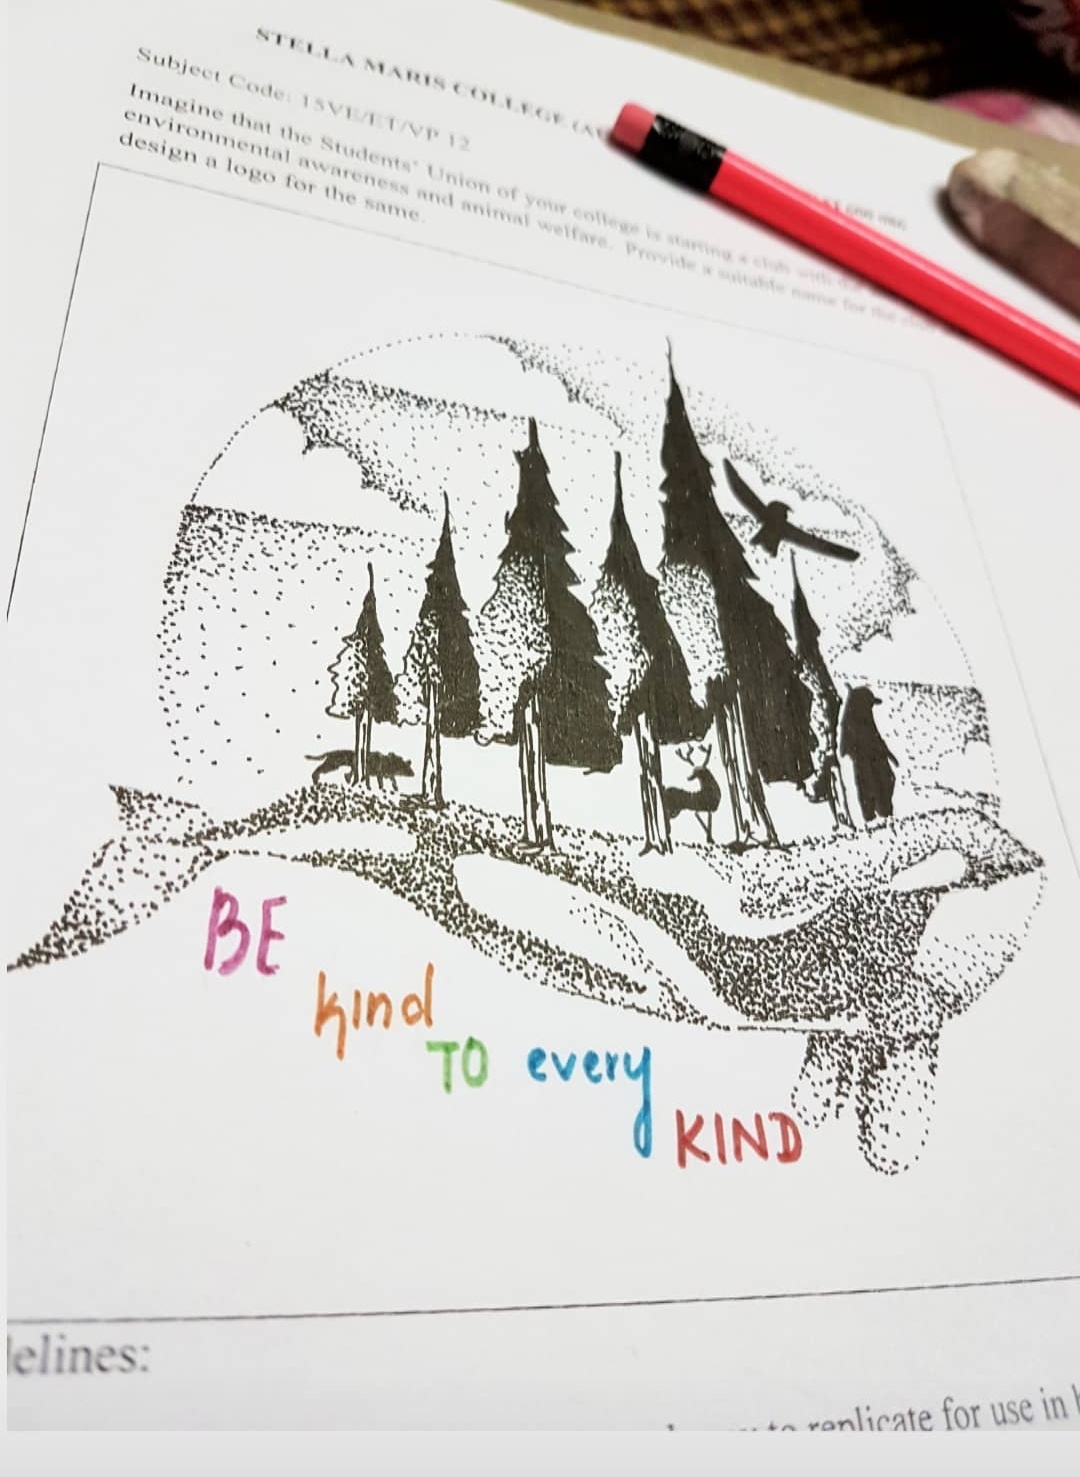 STELLA MARIS COLLEGE
Subject Code: 15VE/ET/VP 12
Imagine that the Students' Union of your college is starting a club with the
environmental awareness and animal welfare. Provide a suitable name for the club
design a logo for the same.
BE
kind
TO every
KIND
elines:
to replicate for use in